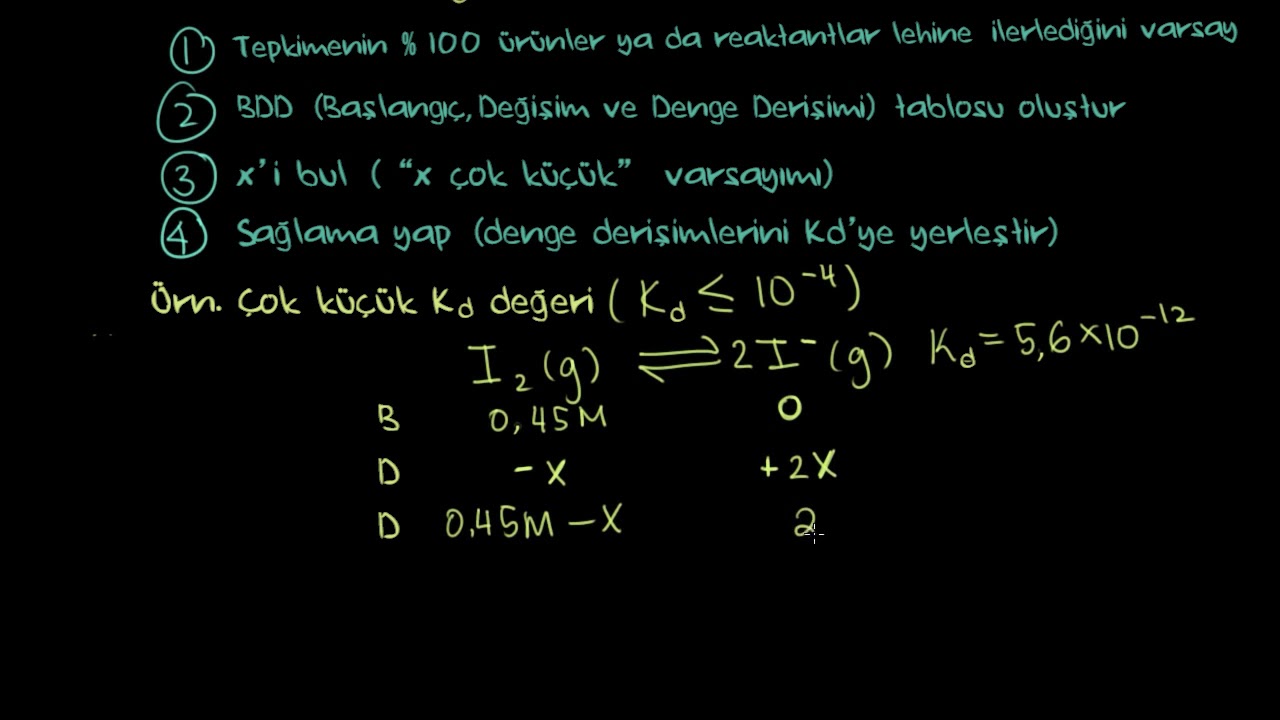 1 Tepkimenin % 100 ürünler ya da reaktantlar lehine ilerlediğini varsay
2 BDD (Başlangıç, Değişim ve Denge Derişimi) tablosu oluştur
3 x'i bul ( “x çok küçük” varsayımı)
4 Sağlama yap (denge derişimlerini Kd'ye yerleştir)
Örn. Çok küçük Kd değeri ( Kd ≤ 10⁻⁴)
I₂ (g) ⇌ 2I⁻ (g) Kd = 5,6×10⁻¹²
B 0,45M 0
D - X + 2X
D 0,45M - X 2